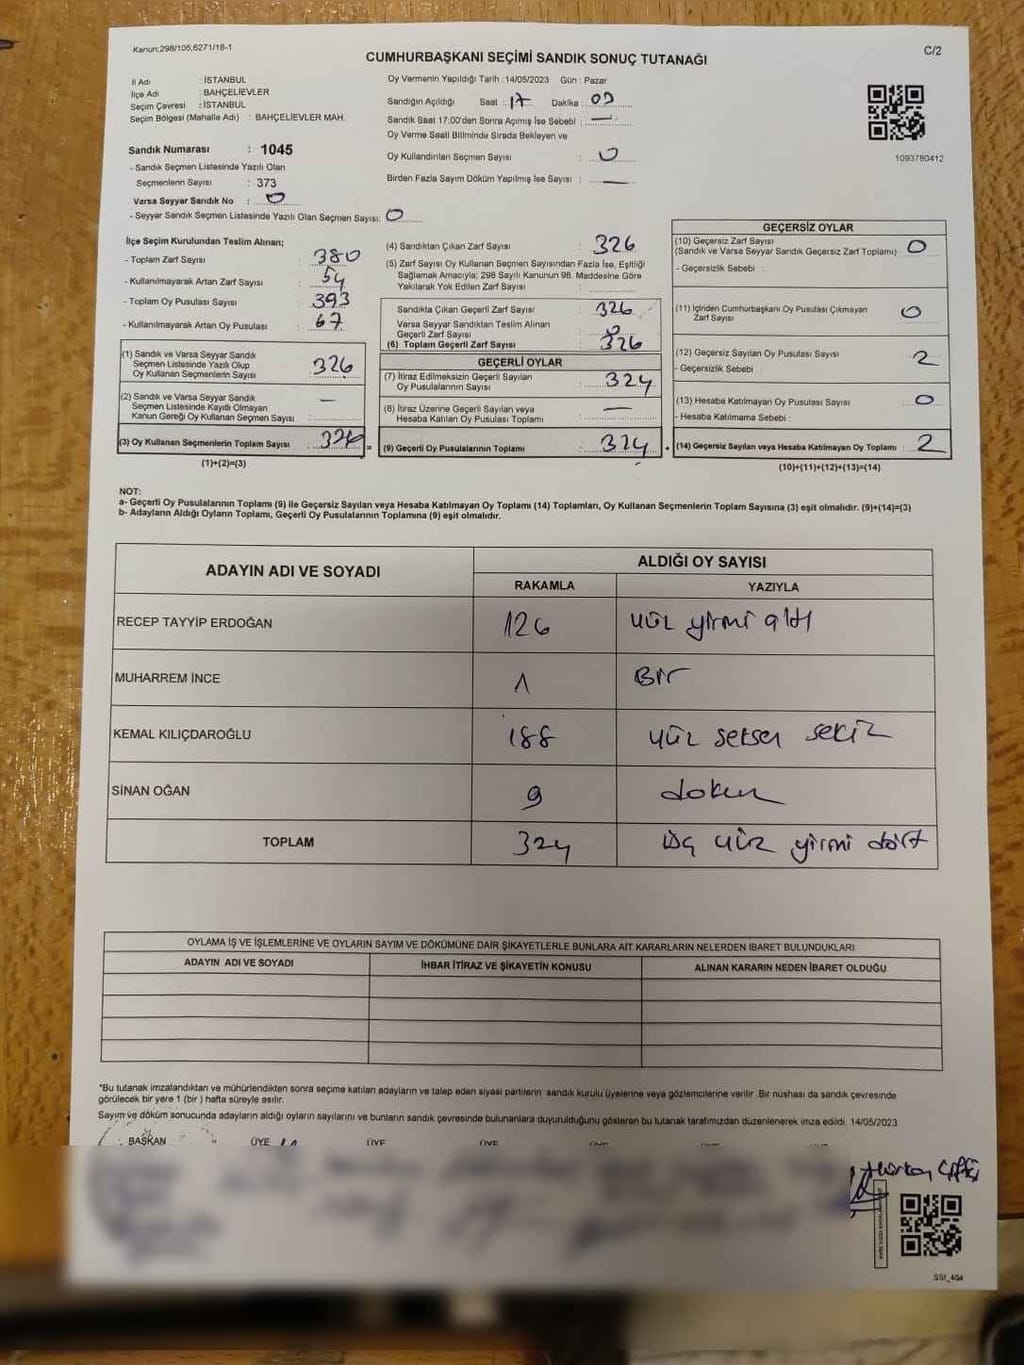 Kanun:298/105;6271/18-1
C/2
CUMHURBAŞKANI SEÇİMİ SANDIK SONUÇ TUTANAĞI
İl Adı : İSTANBUL
İlçe Adı : BAHÇELİEVLER
Seçim Çevresi : İSTANBUL
Seçim Bölgesi (Mahalle Adı) : BAHÇELİEVLER MAH.
Sandık Numarası : 1045
- Sandık Seçmen Listesinde Yazılı Olan
Seçmenlerin Sayısı : 373
Varsa Seyyar Sandık No : 0
- Seyyar Sandık Seçmen Listesinde Yazılı Olan Seçmen Sayısı: 0
Oy Vermenin Yapıldığı Tarih : 14/05/2023 Gün : Pazar
Sandığın Açıldığı Saat : 17 Dakika :
Sandık Saat 17:00'den Sonra Açımış İse Sebebi : —
Oy Verme Saati Bitiminde Sırada Bekleyen ve
Oy Kullandırılan Seçmen Sayısı : 0
Birden Fazla Sayım Döküm Yapılmış İse Sayısı : —
1093780412
İlçe Seçim Kurulundan Teslim Alınan;
- Toplam Zarf Sayısı : 380
- Kullanılmayarak Artan Zarf Sayısı : 54
- Toplam Oy Pusulası Sayısı : 393
- Kullanılmayarak Artan Oy Pusulası : 67
(1) Sandık ve Varsa Seyyar Sandık
Seçmen Listesinde Yazılı Olup
Oy Kullanan Seçmenlerin Sayısı : 326
(2) Sandık ve Varsa Seyyar Sandık
Seçmen Listesinde Kayıtlı Olmayan
Kanun Gereği Oy Kullanan Seçmen Sayısı : —
(3) Oy Kullanan Seçmenlerin Toplam Sayısı : 326 =
(1)+(2)=(3)
(4) Sandıktan Çıkan Zarf Sayısı : 326
(5) Zarf Sayısı Oy Kullanan Seçmen Sayısından Fazla İse, Eşitliği
Sağlamak Amacıyla; 298 Sayılı Kanunun 98. Maddesine Göre
Yakılarak Yok Edilen Zarf Sayısı :
Sandıkta Çıkan Geçerli Zarf Sayısı : 326
Varsa Seyyar Sandıktan Teslim Alınan
Geçerli Zarf Sayısı : 0
(6) Toplam Geçerli Zarf Sayısı : 326
GEÇERLİ OYLAR
(7) İtiraz Edilmeksizin Geçerli Sayılan
Oy Pusulalarının Sayısı : 324
(8) İtiraz Üzerine Geçerli Sayılan veya
Hesaba Katılan Oy Pusulaları Toplamı : —
(9) Geçerli Oy Pusulalarının Toplamı : 324 +
GEÇERSİZ OYLAR
(10) Geçersiz Zarf Sayısı
(Sandık ve Varsa Seyyar Sandık Geçersiz Zarf Toplamı) : 0
- Geçersizlik Sebebi :
(11) İçinden Cumhurbaşkanı Oy Pusulası Çıkmayan
Zarf Sayısı : 0
(12) Geçersiz Sayılan Oy Pusulası Sayısı : 2
- Geçersizlik Sebebi :
(13) Hesaba Katılmayan Oy Pusulası Sayısı : 0
- Hesaba Katılmama Sebebi :
(14) Geçersiz Sayılan veya Hesaba Katılmayan Oy Toplamı : 2
(10)+(11)+(12)+(13)=(14)
NOT:
a- Geçerli Oy Pusulalarının Toplamı (9) ile Geçersiz Sayılan veya Hesaba Katılmayan Oy Toplamı (14) Toplamları, Oy Kullanan Seçmenlerin Toplam Sayısına (3) eşit olmalıdır. (9)+(14)=(3)
b- Adayların Aldığı Oyların Toplamı, Geçerli Oy Pusulalarının Toplamına (9) eşit olmalıdır.
ADAYIN ADI VE SOYADI ALDIĞI OY SAYISI
RAKAMLA YAZIYLA
RECEP TAYYİP ERDOĞAN 126 yüz yirmi altı
MUHARREM İNCE 1 Bir
KEMAL KILIÇDAROĞLU 188 yüz seksen sekiz
SİNAN OĞAN 9 dokuz
TOPLAM 324 üç yüz yirmi dört
OYLAMA İŞ VE İŞLEMLERİNE VE OYLARIN SAYIM VE DÖKÜMÜNE DAİR ŞİKAYETLERLE BUNLARA AİT KARARLARIN NELERDEN İBARET BULUNDUKLARI
ADAYIN ADI VE SOYADI İHBAR İTİRAZ VE ŞİKAYETİN KONUSU ALINAN KARARIN NEDEN İBARET OLDUĞU
*Bu tutanak imzalandıktan ve mühürlendikten sonra seçime katılan adayların ve talep eden siyasi partilerin sandık kurulu üyelerine veya gözlemcilerine verilir. Bir nüshası da sandık çevresinde
görülecek bir yere 1 (bir) hafta süreyle asılır.
Sayım ve döküm sonucunda adayların aldığı oyların sayılarını ve bunların sandık çevresinde bulunanlara duyurulduğunu gösteren bu tutanak tarafımızdan düzenlenerek imza edildi. 14/05/2023
BAŞKAN ÜYE ÜYE ÜYE
SSI_404